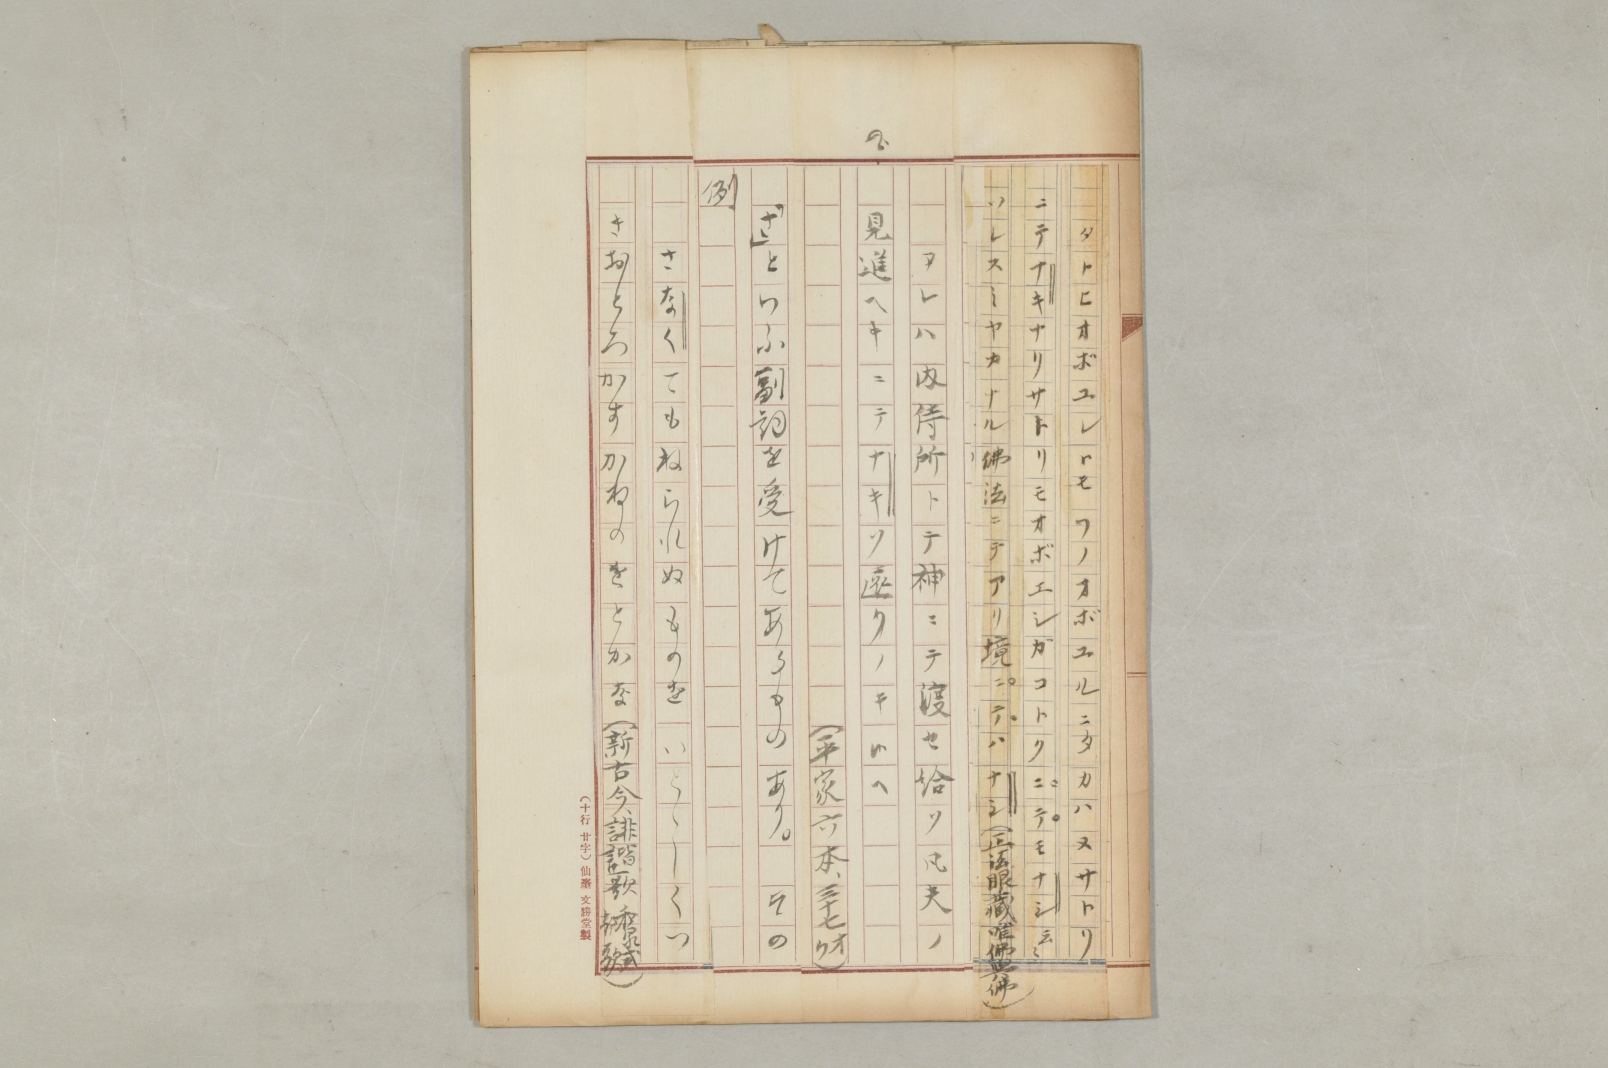 タトヒオボエレトモワノオボエルニタカハヌサトリ
ニテナキナリサトリモオボエシガコトクニテモナシ云々
ソレスミヤカナル佛法ニテアリ境ニテハナシ(正法眼藏唯佛與佛
アレハ内侍所トテ神ニテ渡セ給ソ凡夫ノ
見進ヘキニテナキソ座クノキ給ヘ
(平家六本、三十七オ)
「さ」といふ副詞を受けてあるものあり。その
例
さなくてもねられぬものをいとゝしくつ
きおとろかすかねのをとかな(新古今、誹諧歌 和泉式部歌)
(十行 廿字) 仙臺 文勝堂製